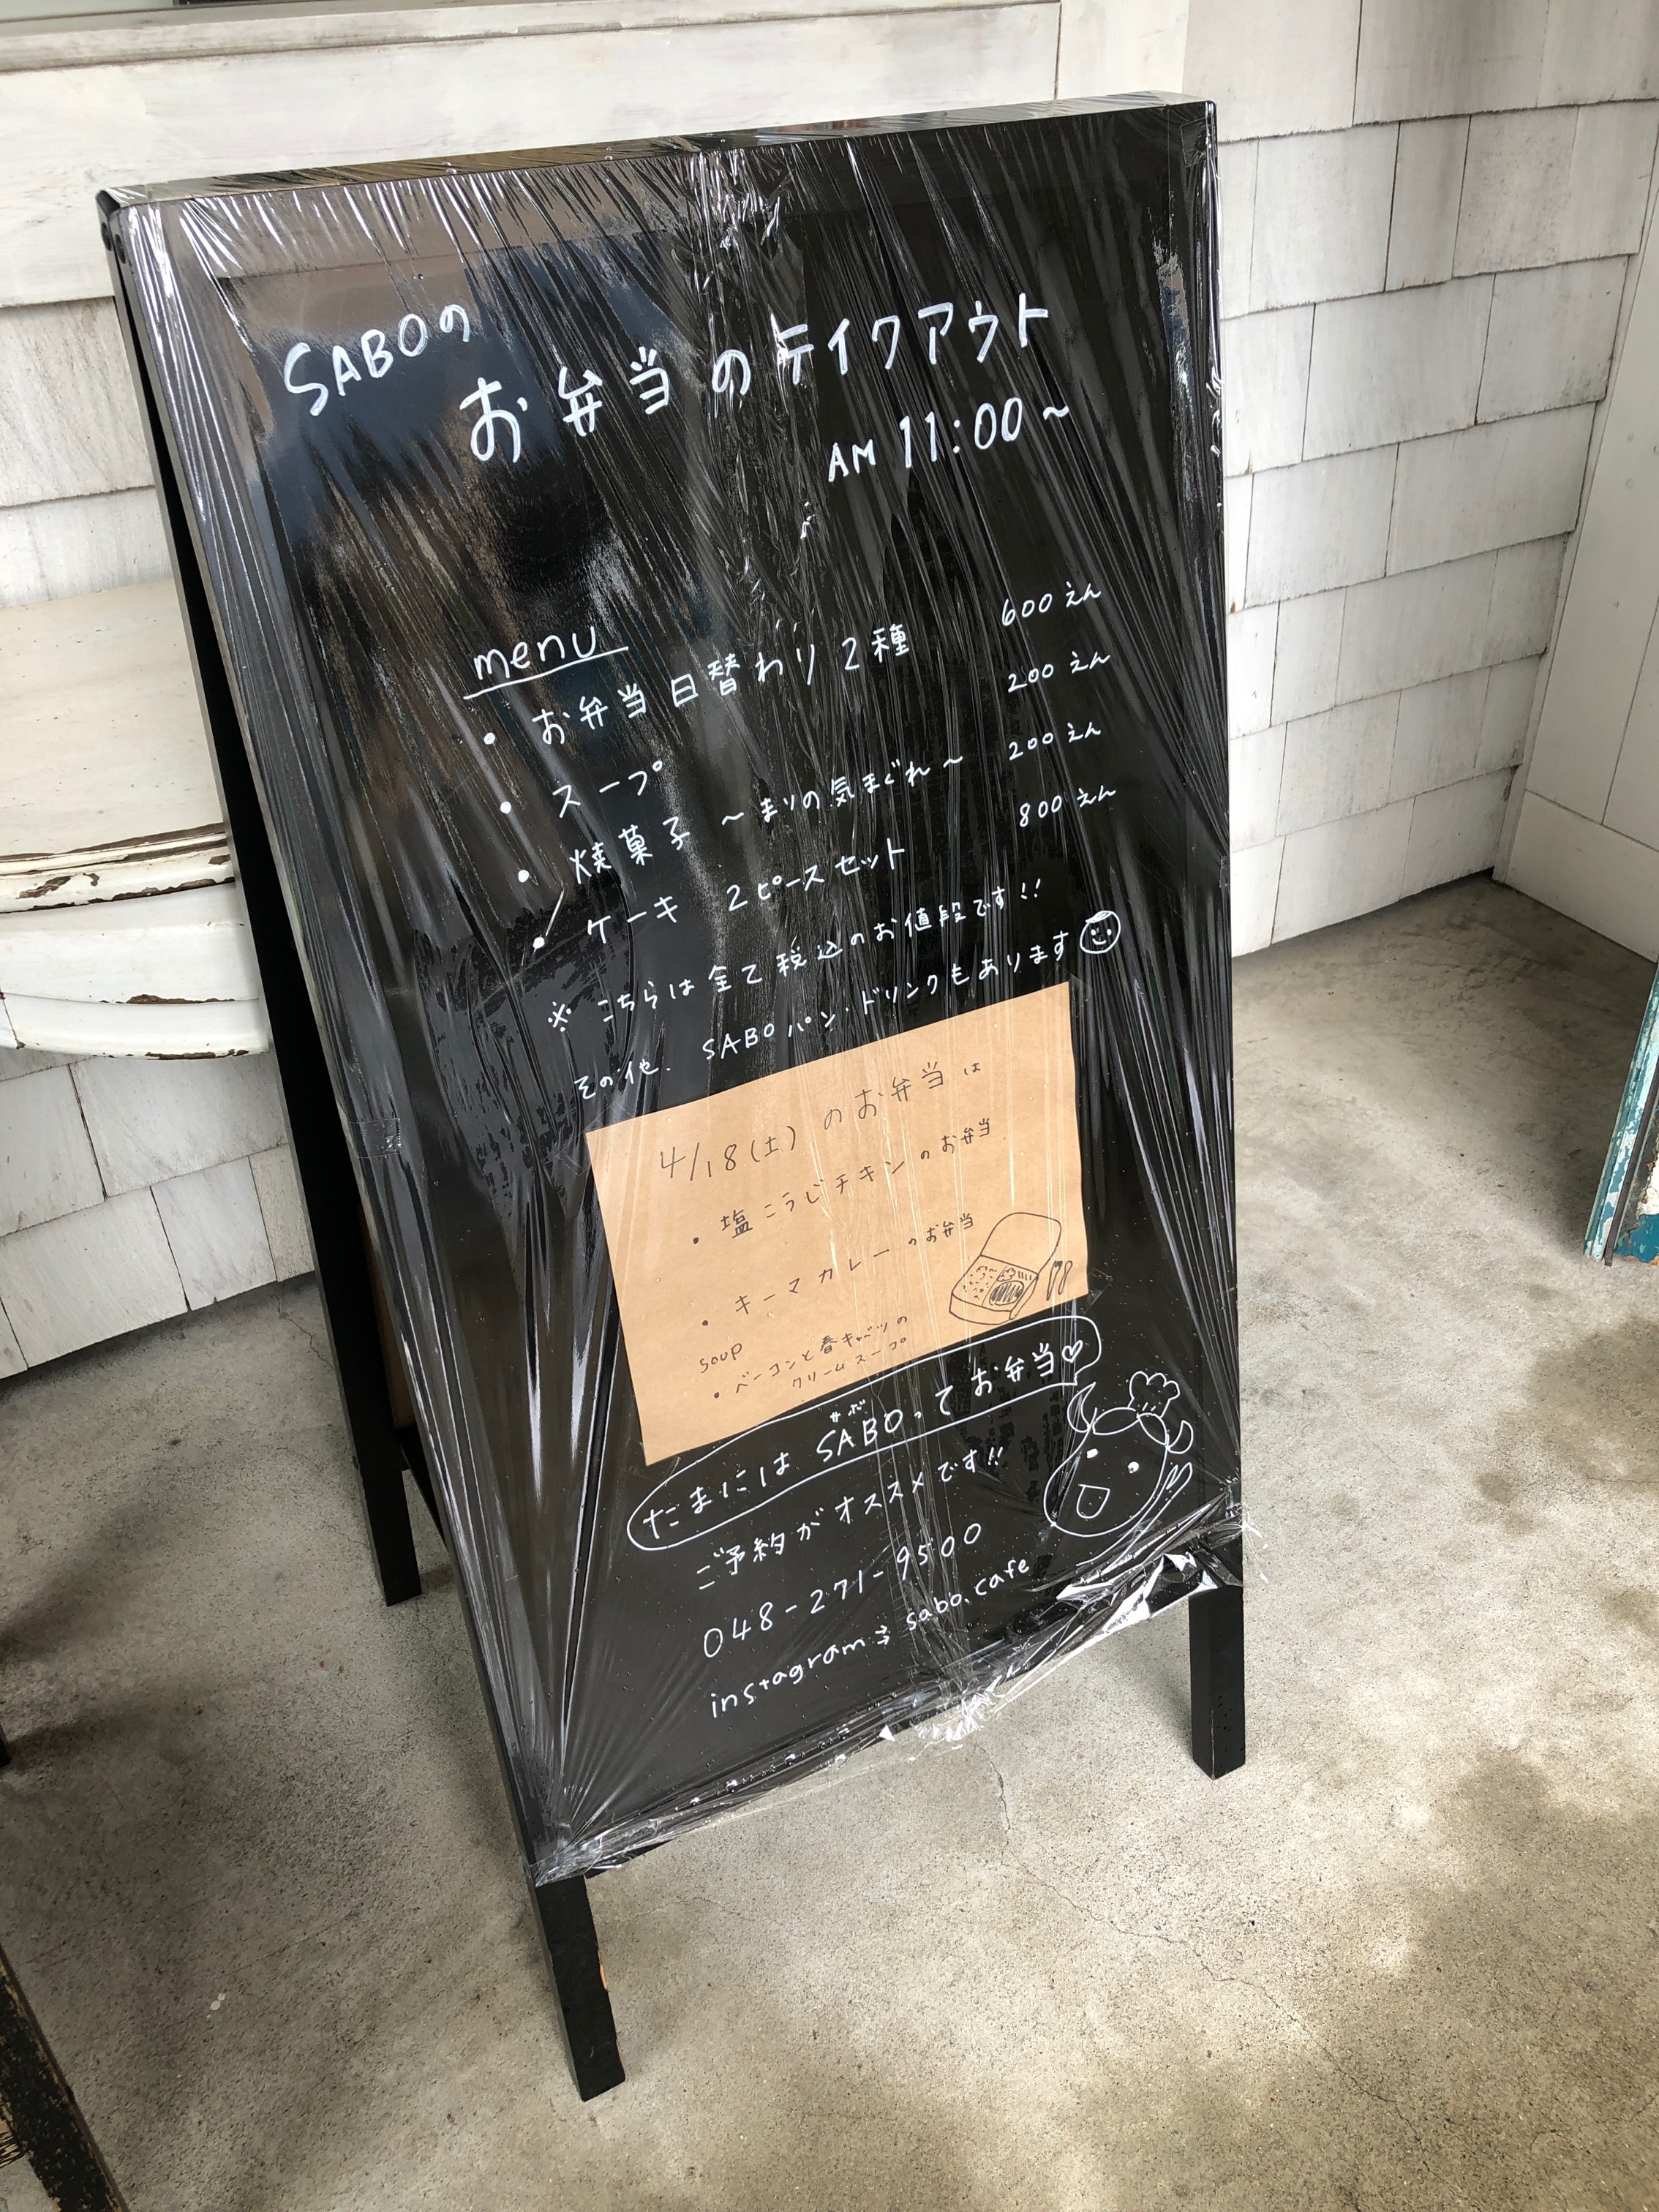 SABOの
お弁当のテイクアウト
AM 11:00～
menu
・お弁当日替わり2種 600えん
・スープ 200えん
・焼菓子 ～まりの気まぐれ～ 200えん
・ケーキ 2ピースセット 800えん
※こちらは全て税込のお値段です!!
その他、SABOパン・ドリンクもあります
4/18(土)のお弁当は
・塩こうじチキンのお弁当
・キーマカレーのお弁当
soup
・ベーコンと春キャベツの
クリームスープ
サボ
たまにはSABOってお弁当♡
ご予約がオススメです!!
048-271-9500
instagram⇒sabo.cafe